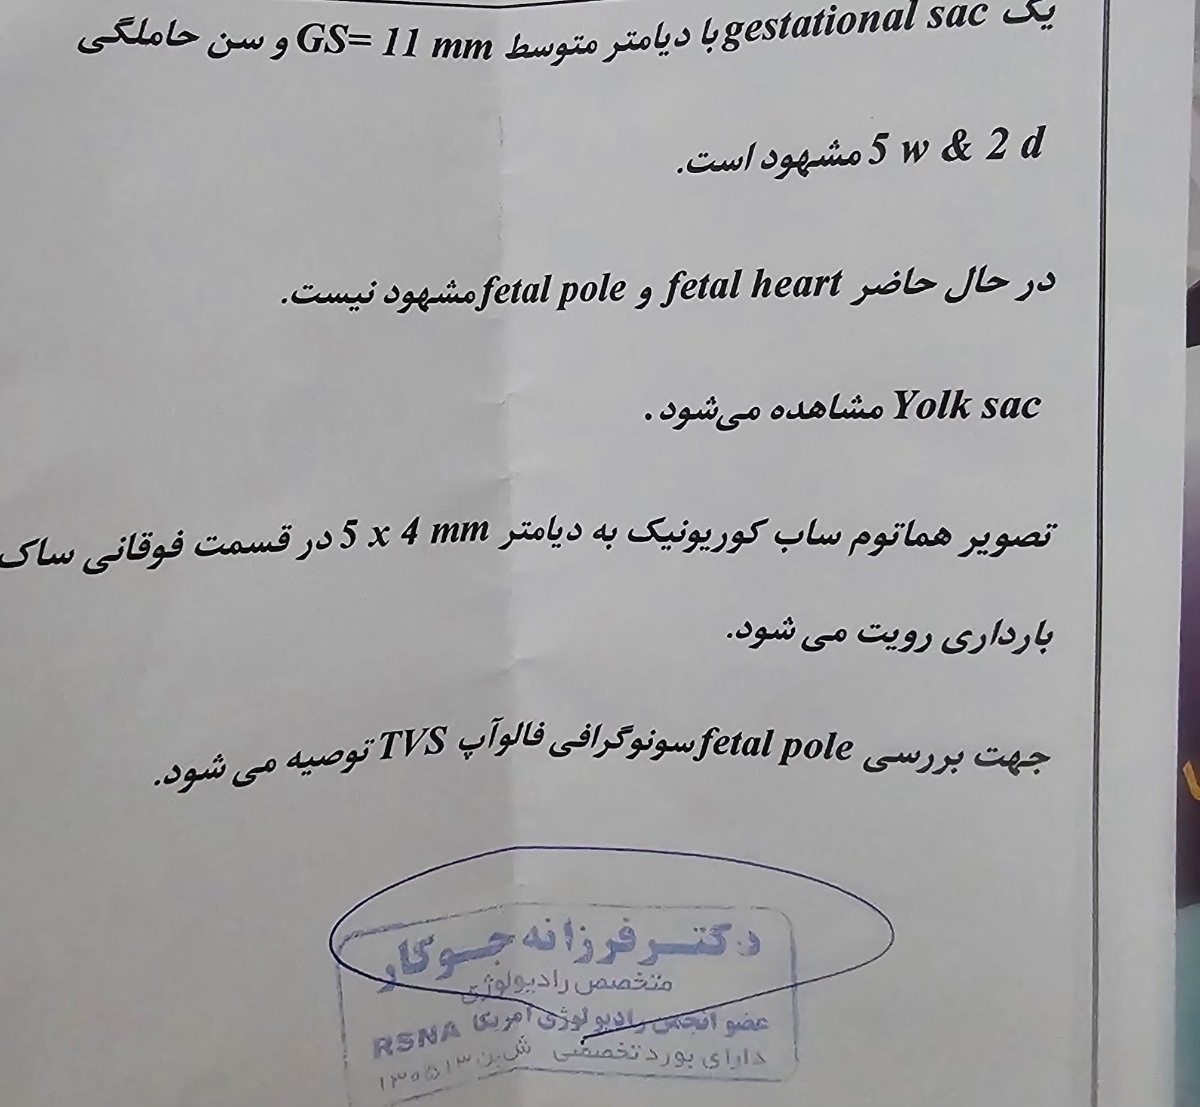 یک gestational sac با دیامتر متوسط GS= 11 mm و سن حاملگی
5 w & 2 d مشهود است.
در حال حاضر fetal heart و fetal pole مشهود نیست.
Yolk sac مشاهده می‌شود .
تصویر هماتوم ساب کوریونیک به دیامتر 5 x 4 mm در قسمت فوقانی ساک
بارداری رویت می شود.
جهت بررسی fetal pole سونوگرافی فالوآپ TVS توصیه می شود.
دکتر فرزانه جوکار
متخصص رادیولوژی
عضو انجمن رادیولوژی آمریکا RSNA
دارای بورد تخصصی ش.ن ۱۳۰۵۱۳